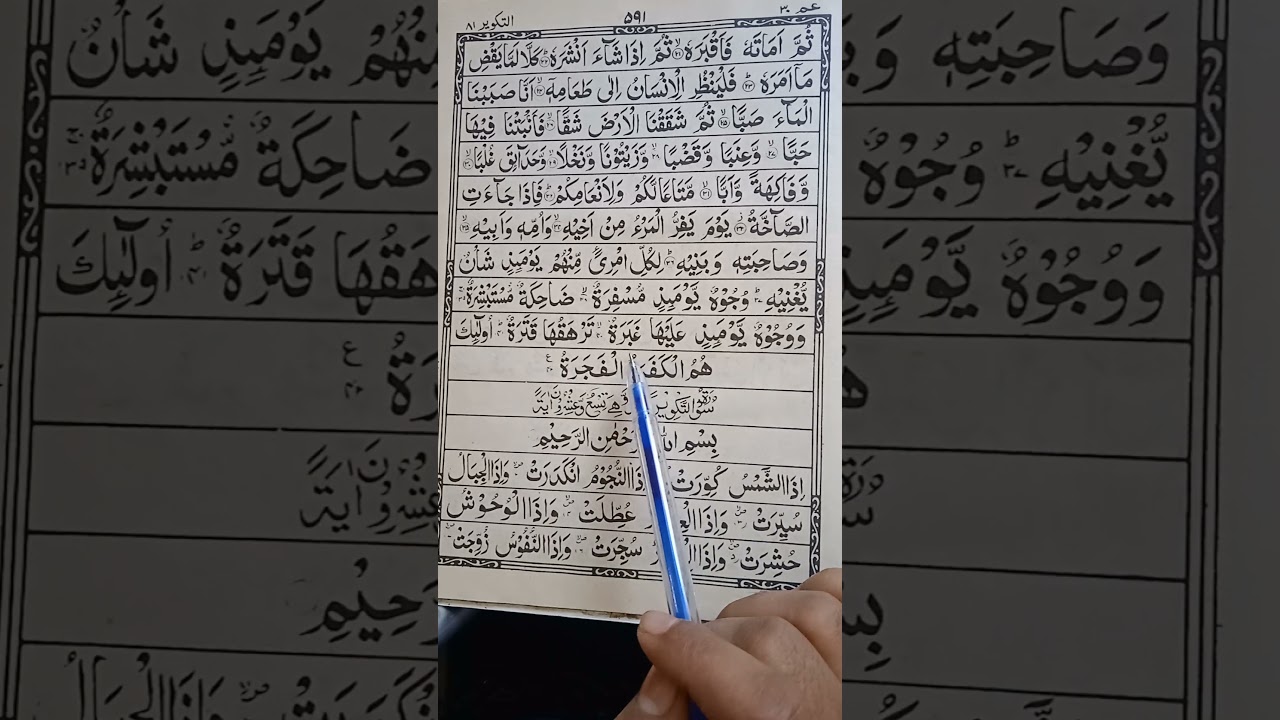 عم ٣٠
٥٩١
التكوير ٨١
ثُمَّ اَمَاتَهٗ فَاَقْبَرَهٗ ۙ﴿۲۱﴾ ثُمَّ اِذَا شَآءَ اَنْشَرَهٗ ؕ﴿۲۲﴾ كَلَّا لَمَّا يَقْضِ
مَاۤ اَمَرَهٗ ؕ﴿۲۳﴾ فَلْيَنْظُرِ الْاِنْسَانُ اِلٰى طَعَامِهٖۤ ۙ﴿۲۴﴾ اَنَّا صَبَبْنَا
الْمَآءَ صَبًّا ۙ﴿۲۵﴾ ثُمَّ شَقَقْنَا الْاَرْضَ شَقًّا ۙ﴿۲۶﴾ فَاَنْۢبَتْنَا فِيْهَا
حَبًّا ۙ﴿۲۷﴾ وَّعِنَبًا وَّقَضْبًا ۙ﴿۲۸﴾ وَّزَيْتُوْنًا وَّنَخْلًا ۙ﴿۲۹﴾ وَّحَدَآئِقَ غُلْبًا ۙ﴿۳۰﴾
وَّفَاكِهَةً وَّاَبًّا ۙ﴿۳۱﴾ مَّتَاعًا لَّكُمْ وَلِاَنْعَامِكُمْ ؕ﴿۳۲﴾ فَاِذَا جَآءَتِ
الصَّآخَّةُ ۫﴿۳۳﴾ يَوْمَ يَفِرُّ الْمَرْءُ مِنْ اَخِيْهِ ۙ﴿۳۴﴾ وَاُمِّهٖ وَاَبِيْهِ ۙ﴿۳۵﴾
وَصَاحِبَتِهٖ وَبَنِيْهِ ؕ﴿۳۶﴾ لِكُلِّ امْرِئٍ مِّنْهُمْ يَوْمَئِذٍ شَاْنٌ
يُّغْنِيْهِ ؕ﴿۳۷﴾ وُجُوْهٌ يَّوْمَئِذٍ مُّسْفِرَةٌ ۙ﴿۳۸﴾ ضَاحِكَةٌ مُّسْتَبْشِرَةٌ ۚ﴿۳۹﴾
وَوُجُوْهٌ يَّوْمَئِذٍ عَلَيْهَا غَبَرَةٌ ۙ﴿۴۰﴾ تَرْهَقُهَا قَتَرَةٌ ؕ﴿۴۱﴾ اُولٰٓئِكَ
هُمُ الْفَجَرَةُ ﴿۴۲﴾
سُوْرَةُ التَّكْوِيْرِ تِسْعٌ وَّعِشْرُوْنَ اٰيَةً
بِسْمِ الرَّحِيْمِ
اِذَا الشَّمْسُ كُوِّرَتْ النُّجُوْمُ انْكَدَرَتْ ۪ۙ﴿۲﴾ وَاِذَا الْجِبَالُ
سُيِّرَتْ ۪ۙ﴿۳﴾ وَاِذَا عُطِّلَتْ ۪ۙ﴿۴﴾ وَاِذَا الْوُحُوْشُ
حُشِرَتْ ۪ۙ﴿۵﴾ وَاِذَا سُجِّرَتْ ۪ۙ﴿۶﴾ وَاِذَا النُّفُوْسُ زُوِّجَتْ